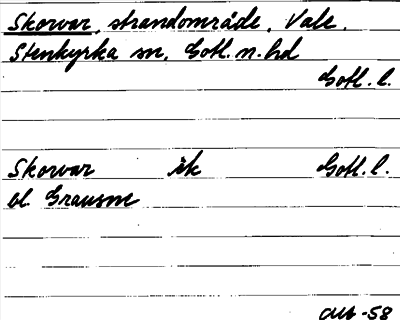 Skorvar, strandområde, Vale,
Stenkyrka sn, Gotl. n. hd
Gotl. l.
Skorvar ik Gotl. l.
bl. Grausne
-58